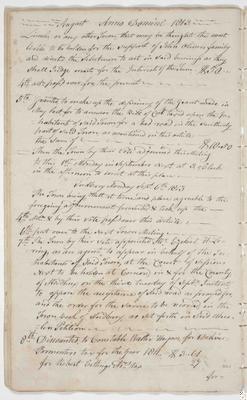 August Anno Domini 1813
Lincoln or any other Town that may be thought the most
to be holden for the Support of John Olivers family
and direct the Selectmen to act in said business as they
Shall Judge most for the Interest of the Town
4th art passed over for the present
5th voted to make up the of the Grant made in
May last for to answer the Bill of Cost laid upon the
habitants of said Town for a bad road in the Southerly
part of said Town as mentioned in this article
the Sum of
then the Town by their vote adjourned this Meeting
to the 1st Monday in September next at 3 Clock
in the afternoon to meet at this place
Sudbury Monday Sept 6th 1813
The Town being met at time and place agreeable to the
foregoing adjournment proceeded to take up the
4th art & by their vote passed over this article
6th past over to the next Town Meeting
7th The Town by their vote appointed
as an agent to appear in behalf of the In-
habitants of Said Town at the Court of Sessions
next to be holden at Concord in & for the County
of Middlesex on the third Tuesday of Sept Instant
to oppose the acceptance of Said road as prayed for
and the order for the Same to be in the
Town book of Sudbury as set forth in Said
Petition
8th Discounted to Constable Walter
Parmenters tax for the year 1811
for Robert
for